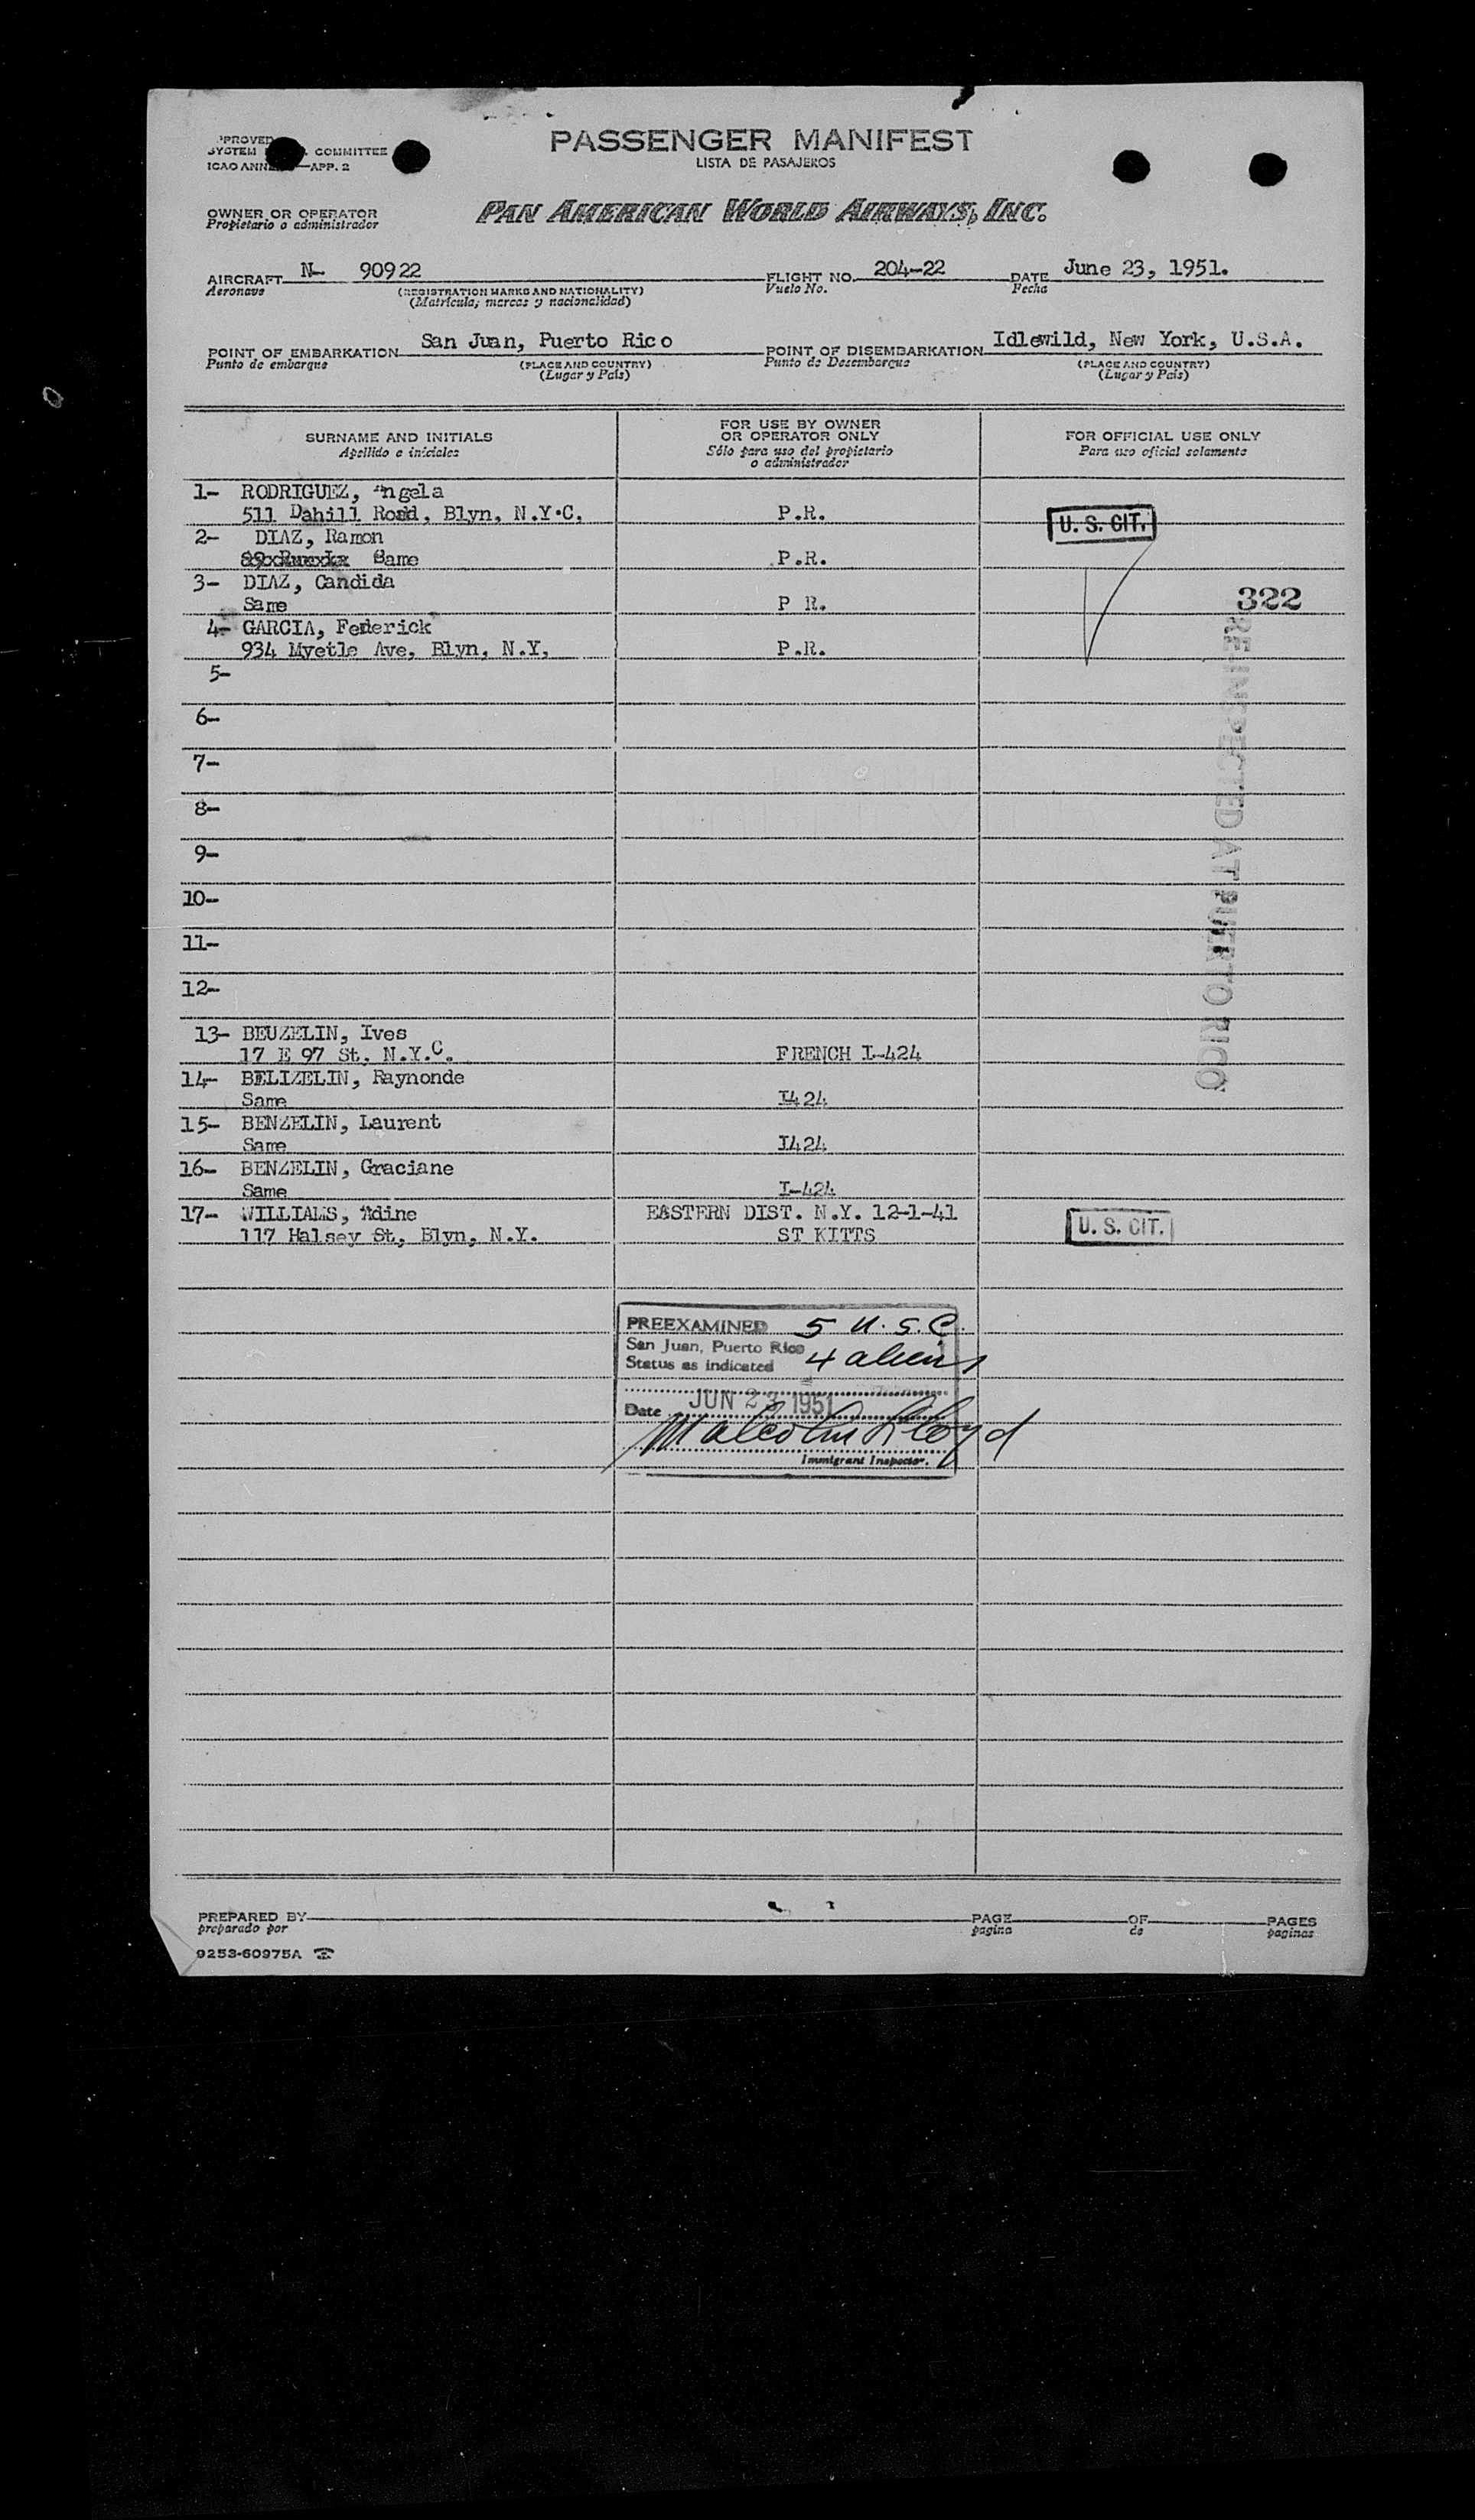 PASSENGER MANIFEST
LISTA DE PASAJEROS
COMMITTEE
APP. 2
PAN AMERICAN WORLD AIRWAYS, INC.
OWNER OR OPERATOR
Propietario o administrador
AIRCRAFT N- 90922 FLIGHT NO. 204-22 DATE June 23, 1951.
Aeronave (REGISTRATION MARKS AND NATIONALITY) Vuelo No. Fecha
(Matrícula, marcas y nacionalidad)
POINT OF EMBARKATION San Juan, Puerto Rico POINT OF DISEMBARKATION Idlewild, New York, U.S.A.
Punto de embarque (PLACE AND COUNTRY) Punto de Desembarque (PLACE AND COUNTRY)
(Lugar y País) (Lugar y País)
SURNAME AND INITIALS FOR USE BY OWNER OR OPERATOR ONLY FOR OFFICIAL USE ONLY
Apellido e iniciales Sólo para uso del propietario o administrador Para uso oficial solamente
1- RODRIGUEZ, Angela
511 Dahill Road, Blyn, N.Y.C. P.R. U. S. CIT.
2- DIAZ, Ramon
Same P.R.
3- DIAZ, Candida
Same P R. 322
4- GARCIA, Federick
934 Myetle Ave, Blyn, N.Y, P.R.
5-
6-
7-
8-
9-
10-
11-
12-
INSPECTED AT PUERTO RICO
13- BEUZELIN, Ives
17 E 97 St, N.Y.C. FRENCH I-424
14- BELIZELIN, Raynonde
Same I424
15- BENZELIN, Laurent
Same I424
16- BENZELIN, Graciane
Same I-424
17- WILLIAMS, Adine EASTERN DIST. N.Y. 12-1-41
117 Halsey St, Blyn, N.Y. ST KITTS U. S. CIT.
PREEXAMINED 5 U.S.C.
San Juan, Puerto Rico
Status as indicated 4 aliens
Date JUN 23 1951
Malcolm Lloyd
Immigrant Inspector.
PREPARED BY PAGE OF PAGES
preparado por pagina de paginas
9253-60975A